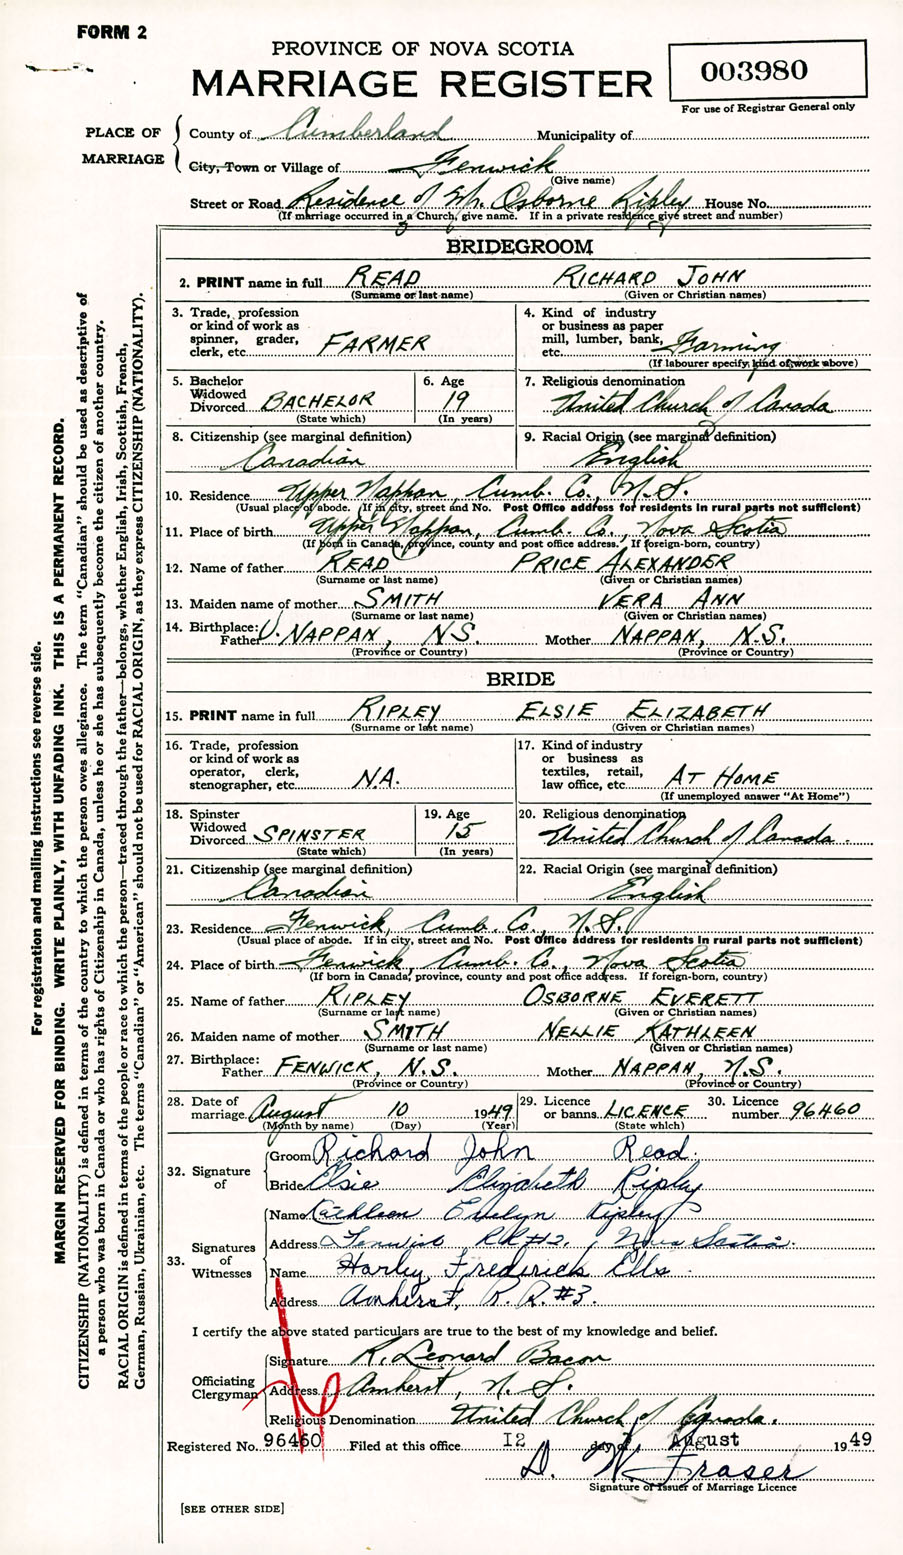 FORM 2
PROVINCE OF NOVA SCOTIA
MARRIAGE REGISTER
003980
For use of Registrar General only
PLACE OF MARRIAGE
County of Cumberland Municipality of
City, Town or Village of Fenwick
(Give name)
Street or Road Residence of Mr. Osborne Ripley House No.
(If marriage occurred in a Church, give name. If in a private residence give street and number)
BRIDEGROOM
2. PRINT name in full READ RICHARD JOHN
(Surname or last name) (Given or Christian names)
3. Trade, profession or kind of work as spinner, grader, clerk, etc. FARMER
4. Kind of industry or business as paper mill, lumber, bank, etc. Farming
(If labourer specify kind of work above)
5. Bachelor Widowed Divorced BACHELOR
(State which)
6. Age 19
(In years)
7. Religious denomination
United Church of Canada
8. Citizenship (see marginal definition)
Canadian
9. Racial Origin (see marginal definition)
English
10. Residence Upper Nappan, Cumb. Co., N.S.
(Usual place of abode. If in city, street and No. Post Office address for residents in rural parts not sufficient)
11. Place of birth Upper Nappan, Cumb. Co., Nova Scotia
(If born in Canada, province, county and post office address. If foreign-born, country)
12. Name of father READ PRICE ALEXANDER
(Surname or last name) (Given or Christian names)
13. Maiden name of mother SMITH VERA ANN
(Surname or last name) (Given or Christian names)
14. Birthplace: Father U. NAPPAN, N.S. Mother NAPPAN, N.S.
(Province or Country) (Province or Country)
BRIDE
15. PRINT name in full RIPLEY ELSIE ELIZABETH
(Surname or last name) (Given or Christian names)
16. Trade, profession or kind of work as operator, clerk, stenographer, etc. N.A.
17. Kind of industry or business as textiles, retail, law office, etc. AT HOME
(If unemployed answer "At Home")
18. Spinster Widowed Divorced SPINSTER
(State which)
19. Age 15
(In years)
20. Religious denomination
United Church of Canada.
21. Citizenship (see marginal definition)
Canadian
22. Racial Origin (see marginal definition)
English
23. Residence Fenwick, Cumb. Co., N.S.
(Usual place of abode. If in city, street and No. Post Office address for residents in rural parts not sufficient)
24. Place of birth Fenwick, Cumb. Co., Nova Scotia
(If born in Canada, province, county and post office address. If foreign-born, country)
25. Name of father RIPLEY OSBORNE EVERETT
(Surname or last name) (Given or Christian names)
26. Maiden name of mother SMITH NELLIE KATHLEEN
(Surname or last name) (Given or Christian names)
27. Birthplace: Father FENWICK, N.S. Mother NAPPAN, N.S.
(Province or Country) (Province or Country)
28. Date of marriage August 10 1949
(Month by name) (Day) (Year)
29. Licence or banns LICENCE
(State which)
30. Licence number 96460
32. Signature of
Groom Richard John Read.
Bride Elsie Elizabeth Ripley
33. Signatures of Witnesses
Name Kathleen Evelyn Ripley
Address Fenwick RR #2, Nova Scotia.
Name Harley Frederick Ells.
Address Amherst, R.R. #3.
I certify the above stated particulars are true to the best of my knowledge and belief.
Officiating Clergyman
Signature R. Leonard Bacon
Address Amherst, N.S.
Religious Denomination United Church of Canada.
Registered No. 96460 Filed at this office 12 day of August 1949
D. W. Fraser
Signature of Issuer of Marriage Licence
[SEE OTHER SIDE]
For registration and mailing instructions see reverse side.
MARGIN RESERVED FOR BINDING. WRITE PLAINLY, WITH UNFADING INK. THIS IS A PERMANENT RECORD.
CITIZENSHIP (NATIONALITY) is defined in terms of the country to which the person owes allegiance. The term "Canadian" should be used as descriptive of
a person who was born in Canada or who has rights of Citizenship in Canada, unless he or she has subsequently become the citizen of another country.
RACIAL ORIGIN is defined in terms of the people or race to which the person—traced through the father—belongs, whether English, Irish, Scottish, French,
German, Russian, Ukrainian, etc. The terms "Canadian" or "American" should not be used for RACIAL ORIGIN, as they express CITIZENSHIP (NATIONALITY).